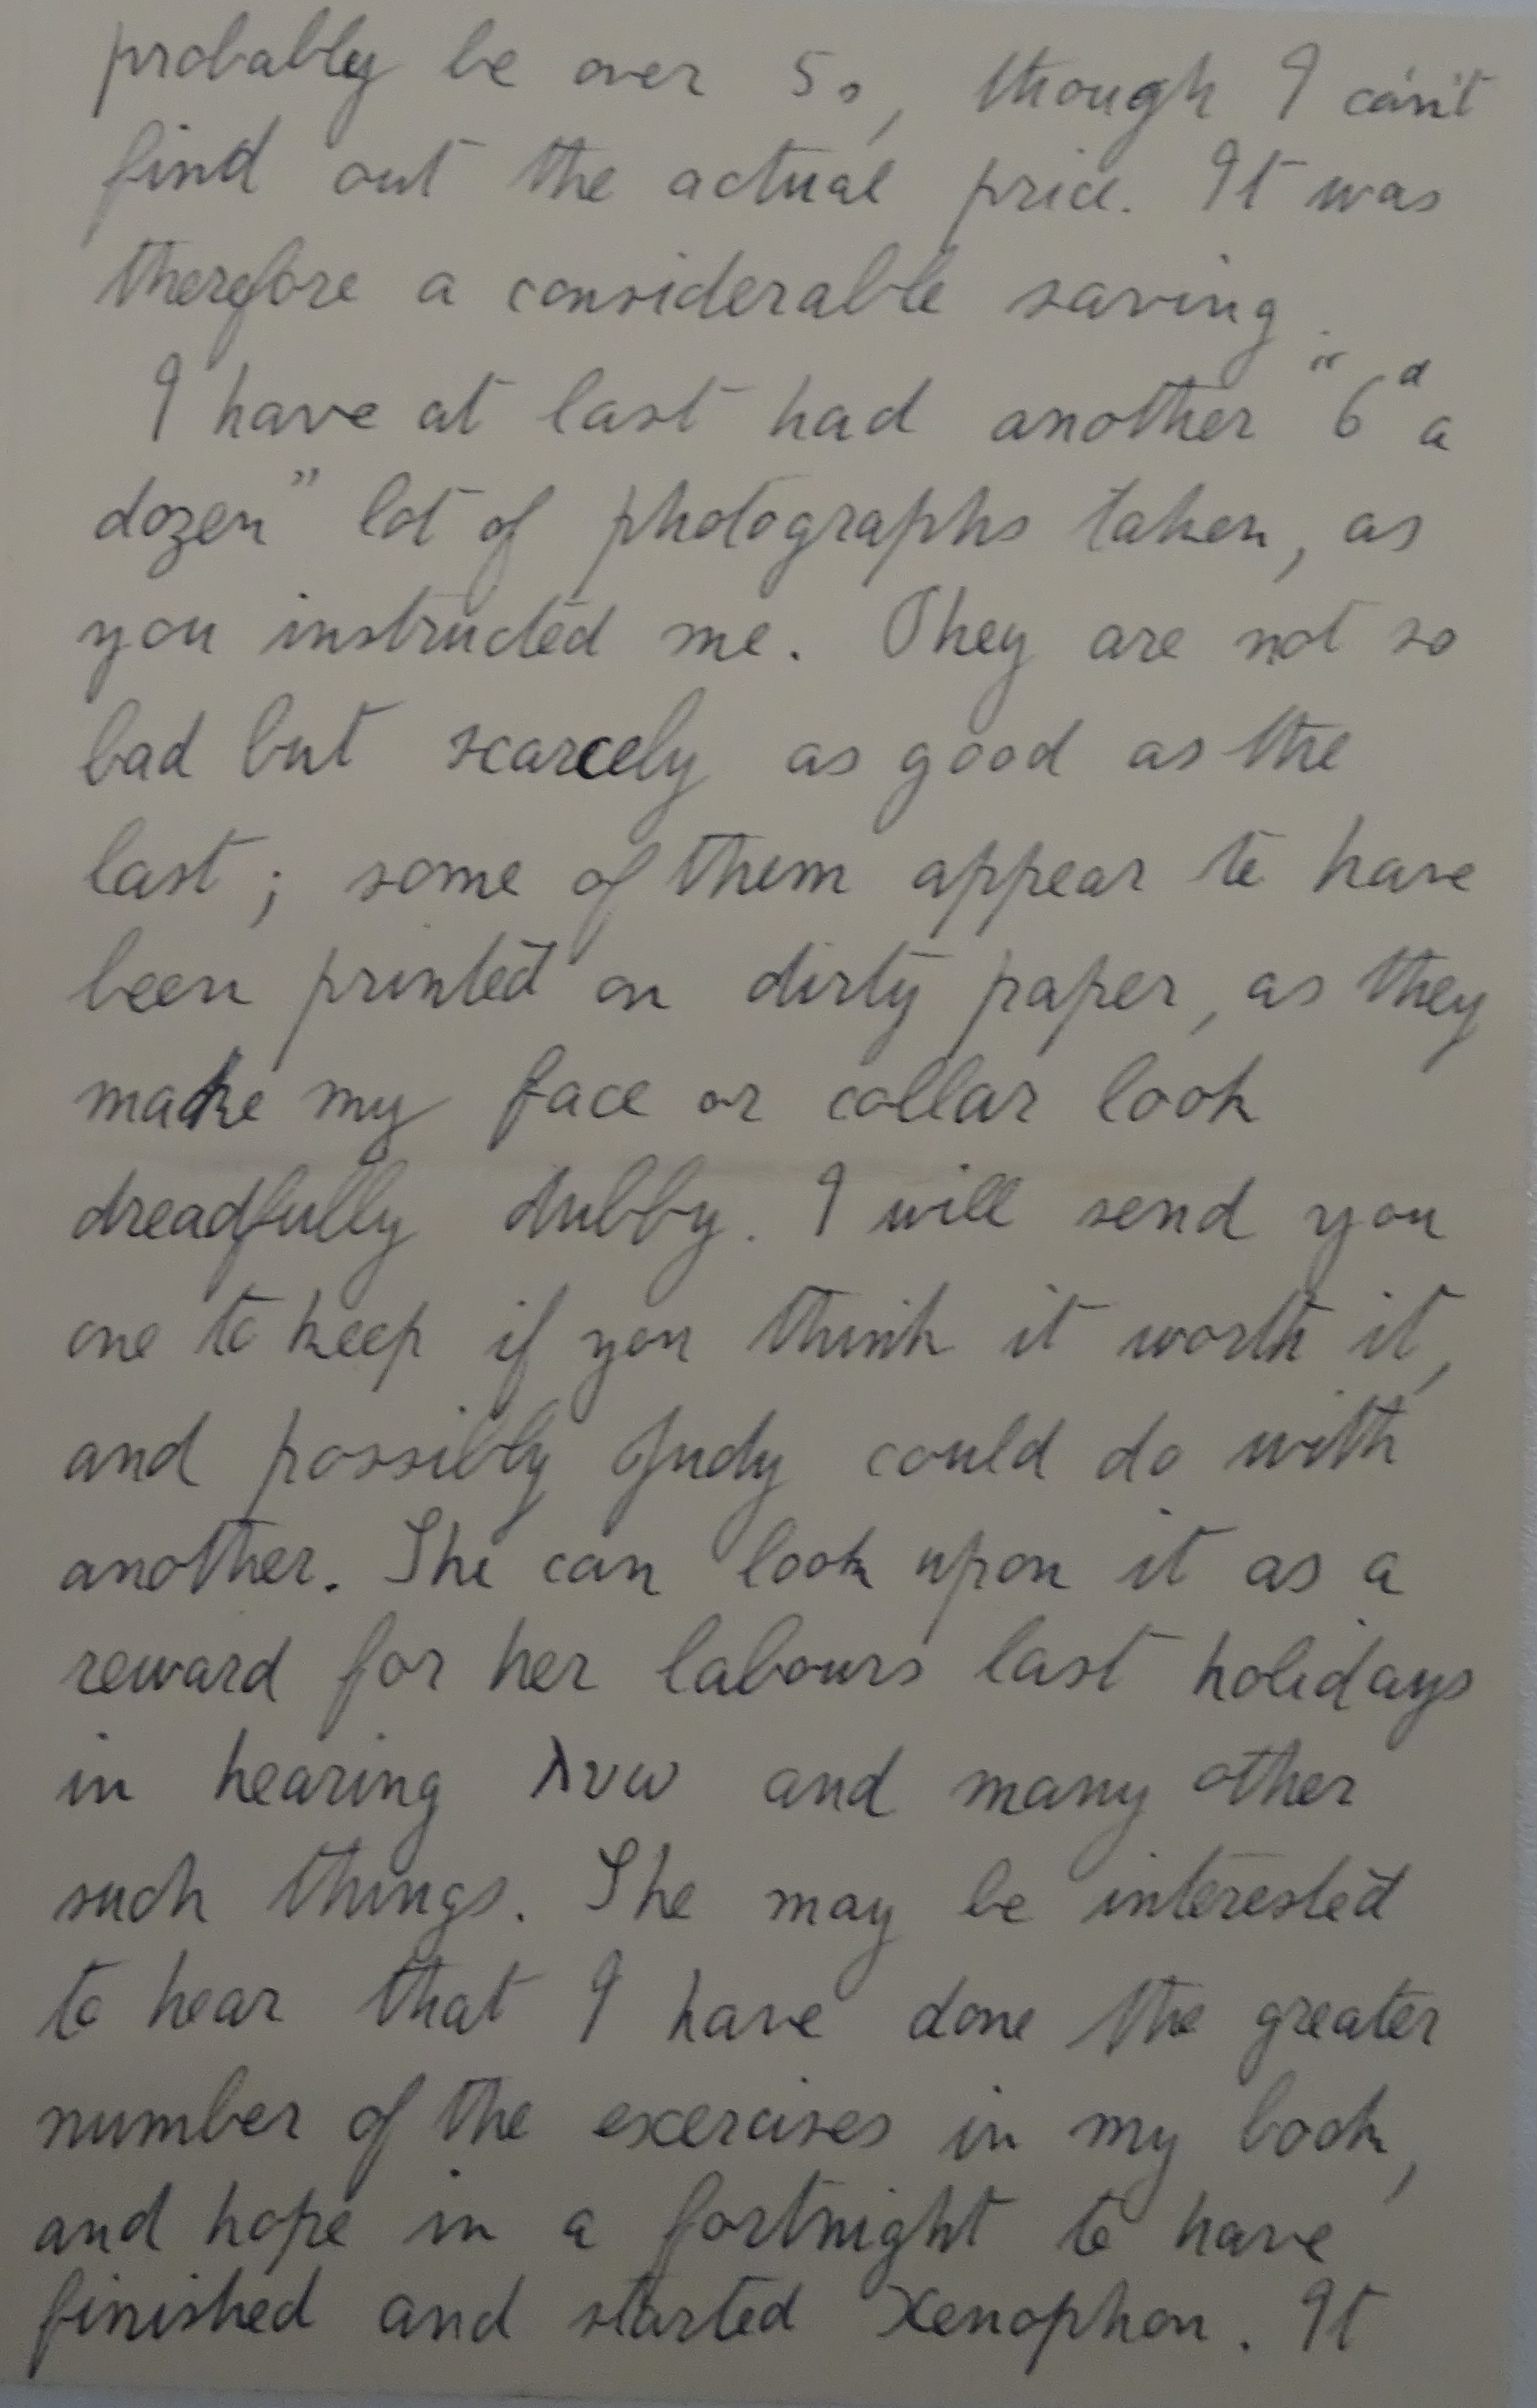 probably be over 5s, though I can't
find out the actual price. It was
therefore a considerable saving.
I have at last had another "6d a
dozen" lot of photographs taken, as
you instructed me. They are not so
bad but scarcely as good as the
last; some of them appear to have
been printed on dirty paper, as they
make my face or collar look
dreadfully dubby. I will send you
one to keep if you think it worth it,
and possibly Judy could do with
another. She can look upon it as a
reward for her labours last holidays
in hearing λυω and many other
such things. She may be interested
to hear that I have done the greater
number of the exercises in my book,
and hope in a fortnight to have
finished and started Xenophon. It